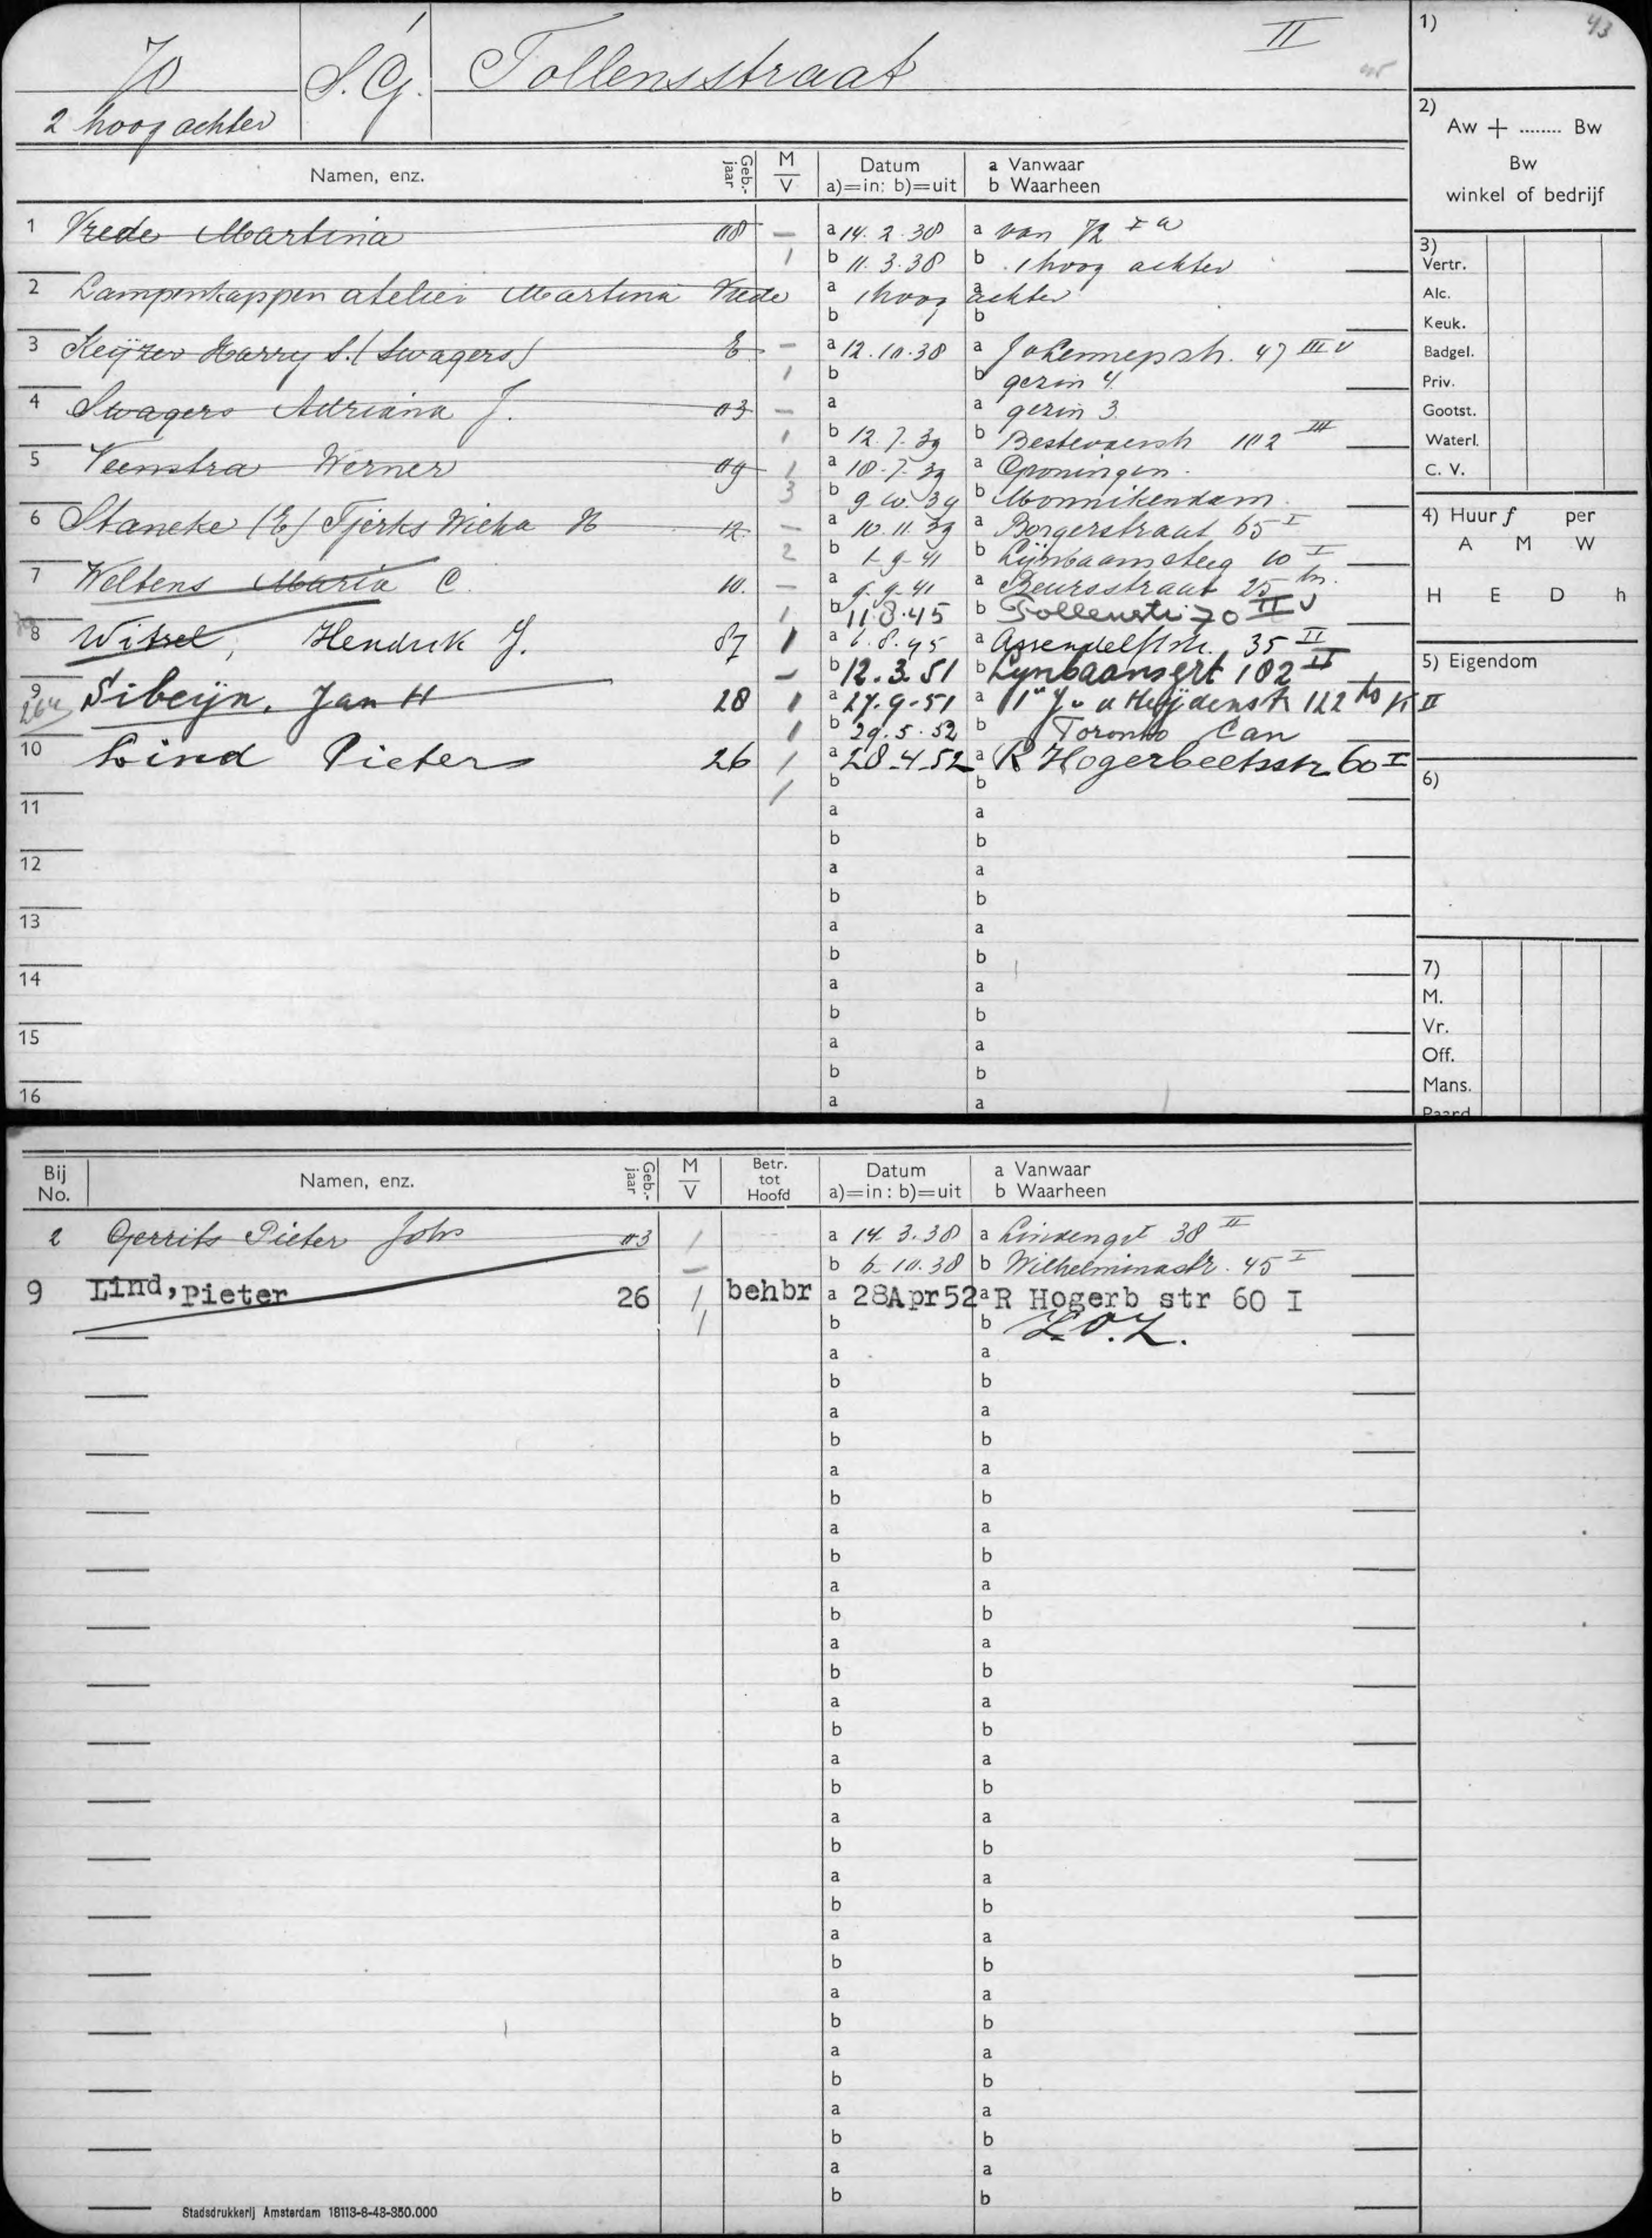 43
70 S.G. Tollensstraat II
2 hoog achter
1)
2)
Aw + ........ Bw
Bw
winkel of bedrijf
Namen, enz. Geb.-jaar M V Datum a)=in: b)=uit a Vanwaar b Waarheen
1 Vrede Martina 08 — a 14.2.38 a van 72 I a
1 b 11.3.38 b 1 hoog achter
2 Lampenkappen atelier Martina Vrede a 1 hoog a achter
b b
3 Keijzer Harry S. (Swagers) E — a 12.10.38 a J v Lennepstr. 47 III v
1 b b gezin 4.
4 Swagers Adriana J. 03 — a a gezin 3.
1 b 12.7.39 b Bestevaerstr 102 III
5 Veenstra Werner 09 1 a 18.7.39 a Groningen.
3 b 9.10.39 b Monnikendam.
6 Staneke (E) Tjerks Wieka H 12. — a 10.11.39 a Borgerstraat 65 I
2 b 1-9-41 b Lijnbaansteeg 10 I
7 Weltens Maria C. 10. — a 9-41 a Beursstraat 25 hs.
1 b 11.8.45 b Tollenstr 70 II v
8 Witzel, Hendrik J. 87 1 a 6.8.45 a Assendelftstr. 35 II
— b 12.3.51 b Lynbaansgrt 102 II
9 Sibeijn, Jan H 28 1 a 27-9-51 a 1e J v d Heijdenstr 122 to K II
1 b 29.5.52 b Toronto Can
10 Lind Pieter 26 1 a 28-4-52 a R Hogerbeetsstr 60 I
1 b b
11 a a
b b
12 a a
b b
13 a a
b b
14 a a
b b
15 a a
b b
16 a a
3)
Vertr.
Alc.
Keuk.
Badgel.
Priv.
Gootst.
Waterl.
C. V.
4) Huur ƒ per
A M W
H E D h
5) Eigendom
6)
7)
M.
Vr.
Off.
Mans.
Paard
Bij No. Namen, enz. Geb.-jaar M V Betr. tot Hoofd Datum a)=in: b)=uit a Vanwaar b Waarheen
2 Gerrits Pieter Johs 03 1 a 14.3.38 a Lindengrt 38 II
— b 6-10.38 b Wilhelminastr. 45 I
9 Lind, Pieter 26 1 behbr a 28Apr52 a R Hogerb str 60 I
1 b b Z.O.Z.
a a
b b
a a
b b
a a
b b
a a
b b
a a
b b
a a
b b
a a
b b
a a
b b
a a
b b
a a
b b
a a
b b
a a
b b
a a
b b
a a
b b
a a
b b
Stadsdrukkerij Amsterdam 18113-8-43-350.000